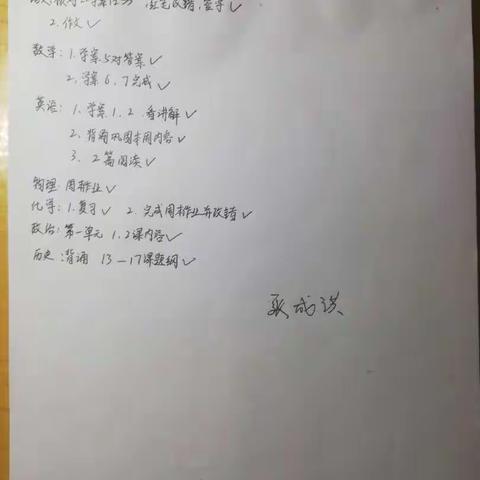 2. 作文✓
数学: 1. 学案5对答案✓
2. 学案6、7完成✓
英语: 1. 学案1、2 看讲解✓
2. 背诵巩固本周内容✓
3. 2篇阅读✓
物理: 周作业✓
化学: 1. 复习✓ 2. 完成周作业并改错✓
政治: 第一单元 1、2课内容✓
历史: 背诵 13—17课题纲✓